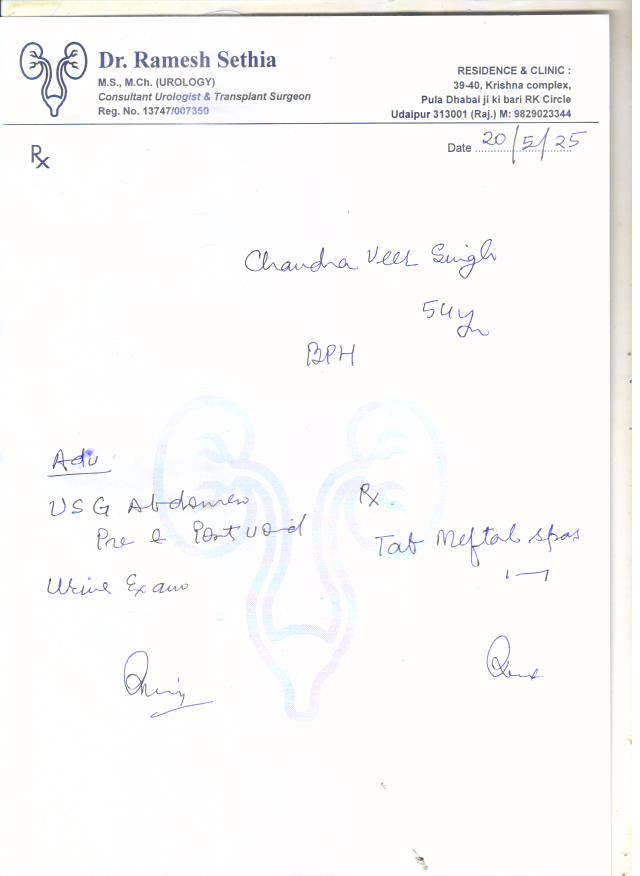 Dr. Ramesh Sethia
M.S., M.Ch. (UROLOGY)
Consultant Urologist & Transplant Surgeon
Reg. No. 13747/007359
RESIDENCE & CLINIC :
39-40, Krishna complex,
Pula Dhabai ji ki bari RK Circle
Udaipur 313001 (Raj.) M: 9829023344
Date 20/5/25
Rx
Chandra Veer Singh
54yr
BPH
Adv
USG Abdomen
Pre & Post void
Urine Exam
Rx.
Tab Meftal spas